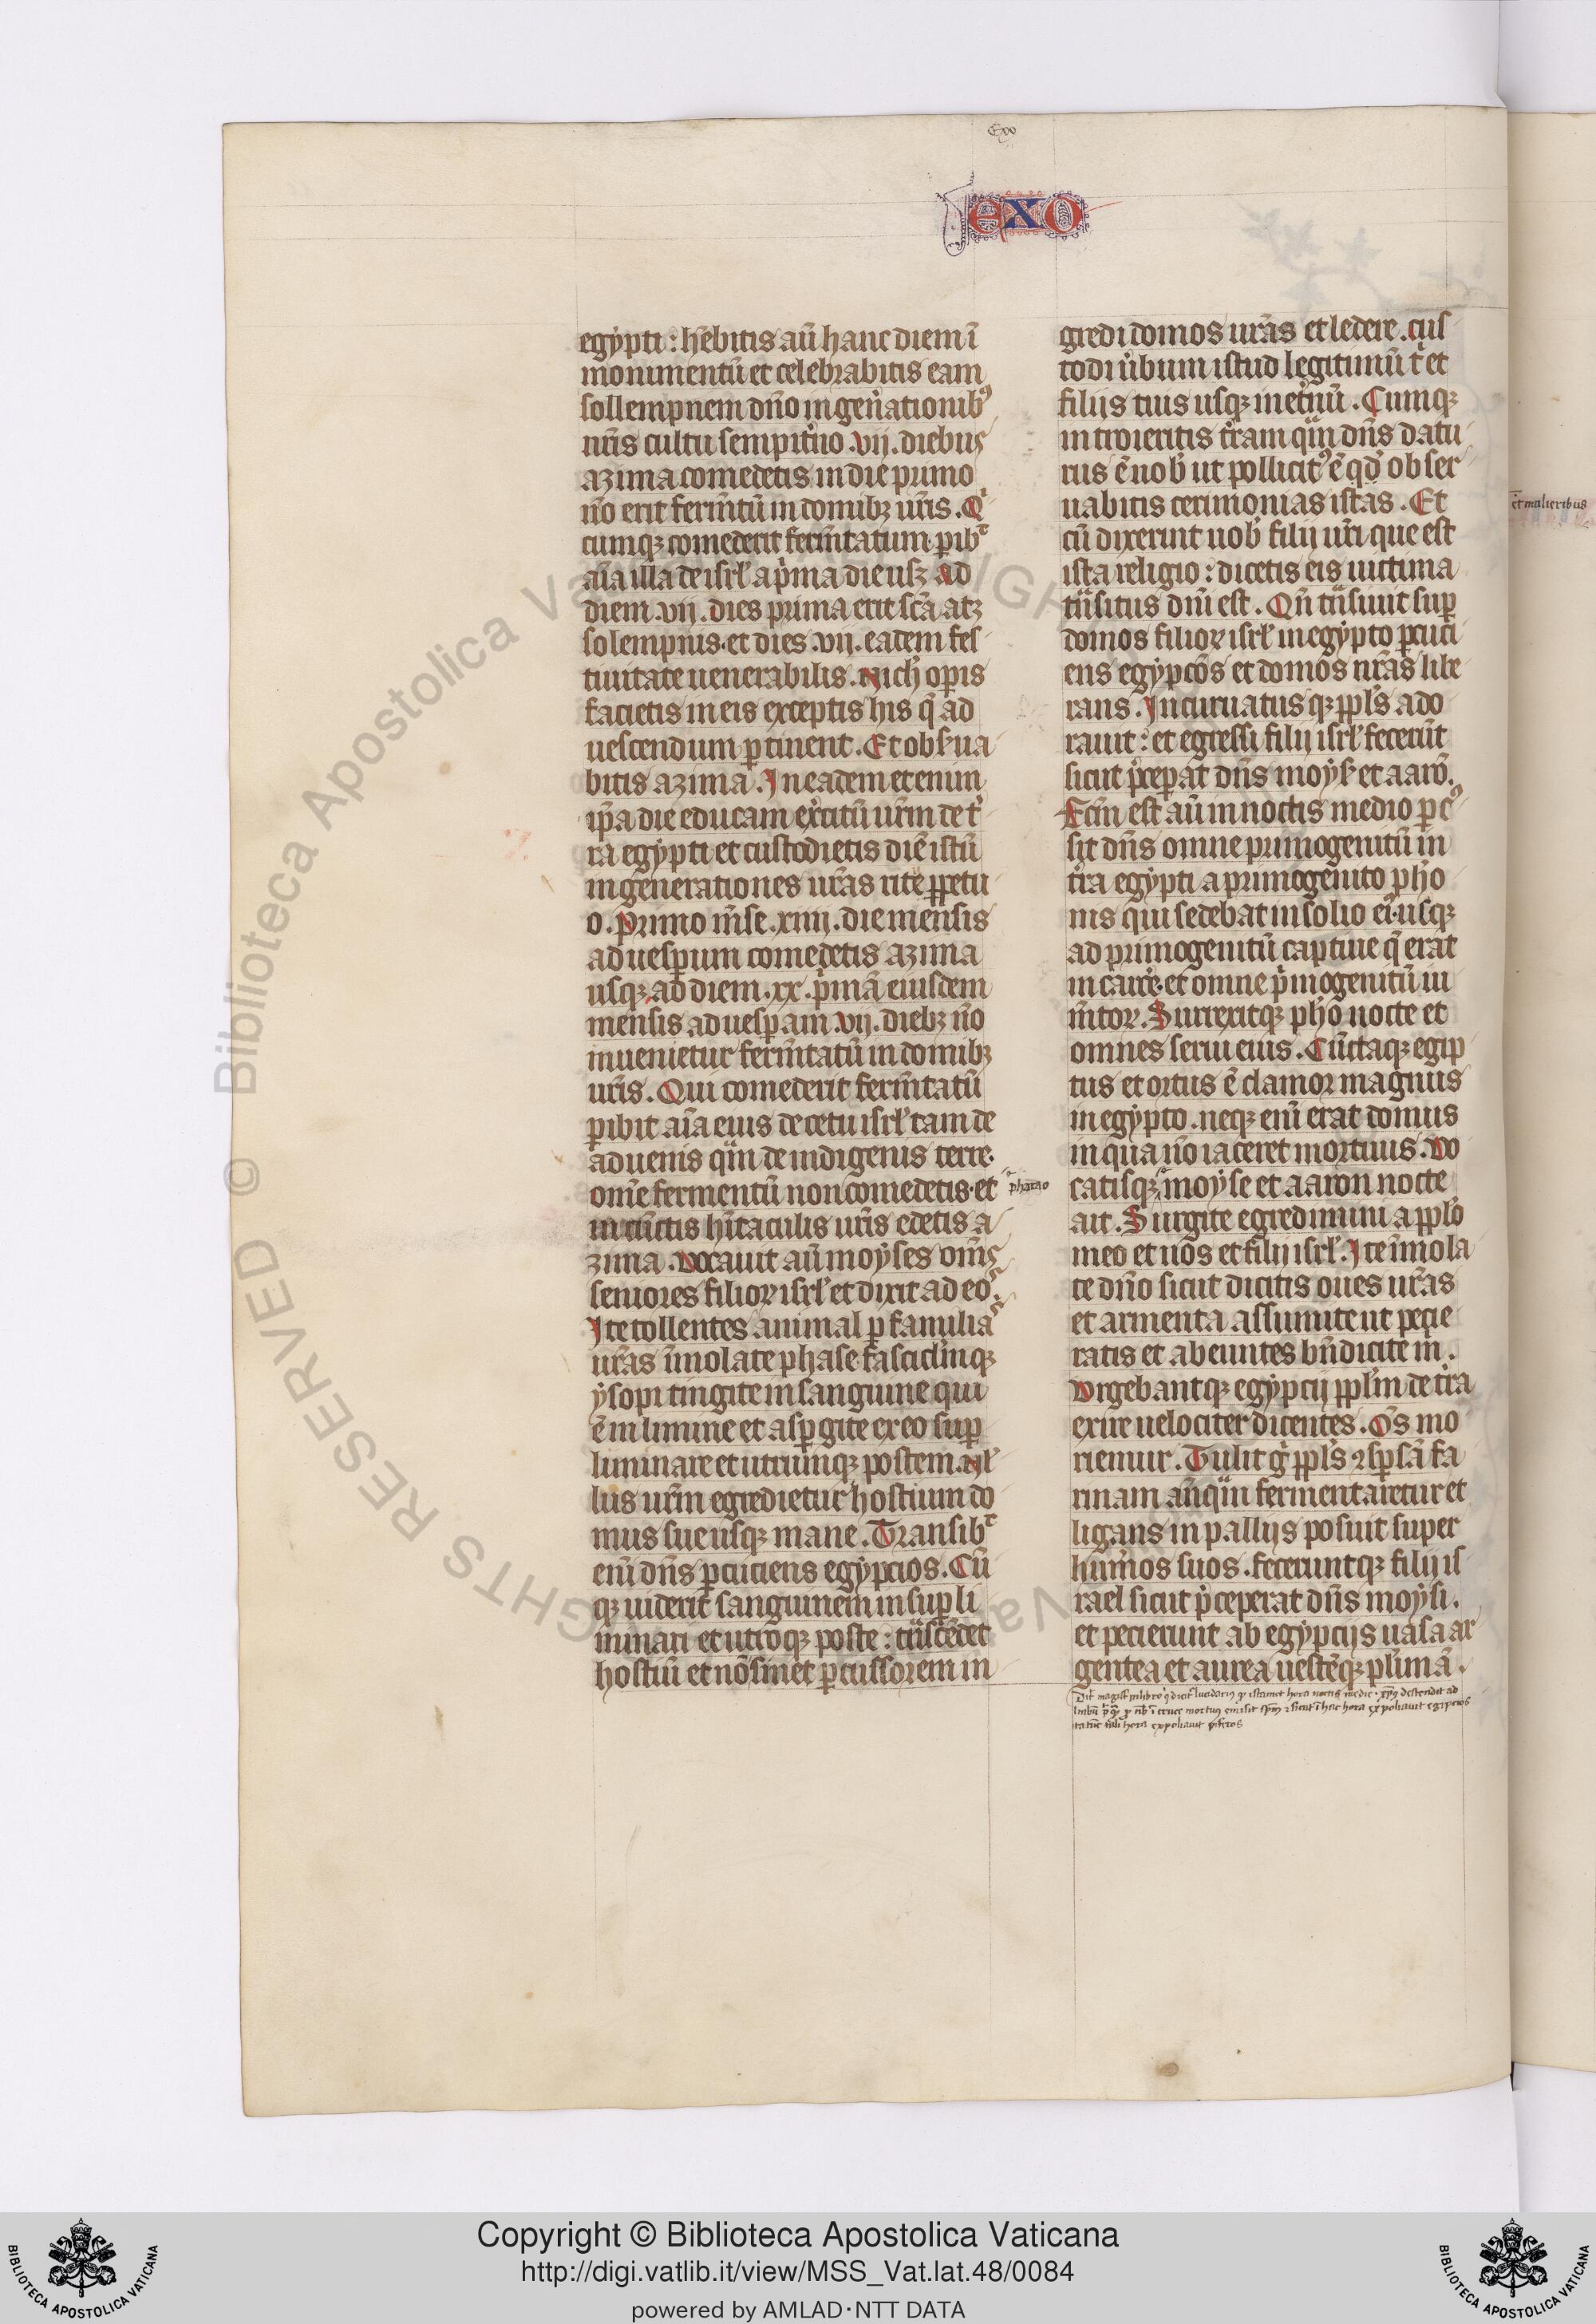 Exo
exo
egypti : hēbitis aū hanc diem ī
monimentū et celebrabitis eam
sollempnem dn̄o in gen̄ationibꝰ
ur̄is cultu sempit̉no .vii. diebus
azima comedetis in die primo
nō erit ferm̄tū in domibꝫ ur̄is . Qͥ
cumqꝫ comederit ferm̄tatum ꝑibᷓ
aīa illa de isrl̓ a pͥma die usꝫ ad
diem .vii. dies prima erit sc̄a atꝫ
solempnis . et dies .vii. eadem fes
tiuitate uenerabilis . Nich̓ oꝑis
facietis in eis exceptis his q̄ ad
uescendum ꝑtinent . Et obẜua
bitis azima . In eadem et enim
ip̄a die educam ex̉citū ur̄m de t̉
ra egypti et custodietis diē istū
in generationes ur̄as rite ꝑpetu
o . Primo m̄se .xiiii. die mensis
ad uesꝑum comedetis azima
usqꝫ ad diem .xx. pͥmā eiusdem
mensis ad uesꝑam .vii. diebꝫ nō
inuenietur ferm̄tatū in domibꝫ
ur̄is . Qui comederit ferm̄tatū
ꝑibit aīa eius de cetu isrl̓ tam de
aduenis qͣm de indigenis terre .
om̄e fermentū non comedetis . et
in cūctis hītaculis ur̄is edetis a
zima . Vocauit aū moyses om̄s
seniores filioꝝ isrl̓ et dixit ad eos .
Ite tollentes animal ꝑ familias
ur̄as īmolate phase fascicl̓mqꝫ
ysopi tingite in sanguine qui
ē in limine et asꝑgite ex eo suꝑ
liminare et utrumqꝫ postem . Nl̓
lus ur̄m egredietur hostium do
mus sue usqꝫ mane . Transibᷓ
enī dn̄s ꝑcuciens egypcios . Cū
qꝫ uiderit sanguinem in suꝑli
minari et utroqꝫ poste : tͣnscēdet
hostiū et nō sinet ꝑcussorem in
pharao
gredi domos ur̄as et ledere . cus
todi u̓bum istud legitimū t̓ et
filiis tuis usqꝫ in et̉nū . Cumqꝫ
introieritis t̉ram qͣm dn̄s datu
rus ē uob̓ ut pollicitꝰ ē qd̓ obser
uabitis cerimonias istas . Et
cū dixerint uob̓ filii ur̄i que est
ista religio : dicetis eis uictima
tͣnsitus dn̄i est . Qn̄ tͣnsiuit suꝑ
domos filioꝝ isrl̓ in egypto ꝑcuci
ens egypcōs et domos nr̄as libe
rans . Incuruatus qꝫ ppl̓s ado
rauit : et egressi filii isrl̓ fecerūt
sicut p̉ceꝑat dn̄s moysi et aarō .
Fctm̄ est aū in noctis medio ꝑcꝰ
sit dn̄s omne primogenitū in
t̉ra egypti a primogenito pho
nis qui sedebat in solio ei . usqꝫ
ad primogenitū captiue q̄ erat
in carc̉e . et omne pͥmogenitū iu
m̄toꝝ . Surrexitqꝫ pho nocte et
omnes serui eius . Cūctaqꝫ egip
tus et ortus ē clamor magnus
in egypto . neqꝫ enī erat domus
in qua nō iaceret mortuus . Vo
catisqꝫ moyse et aaron nocte
ait . Surgite egredimini a ppl̓o
meo et uos et filii isrl̓ . Ite īmola
te dn̄o sicut dicitis oues ur̄as
et armenta assumite ut pecie
ratis et abeuntes bn̄dicite m̄ .
Vrgebantqꝫ egypcii ppl̓m de t̉ra
exire uelociter dicentes . Om̄s mo
riemur . Tulit gͥ ppl̓s ꝯsꝑsā fa
rinam an̄qͣm fermentaretur et
ligans in palliis posuit super
hum̉os suos . feceruntqꝫ filii is
rael sicut p̉ceperat dn̄s moysi .
et pecierunt ab egypciis uasa ar
gentea et aurea uestēqꝫ pl̓imā .
et mulieribus
Copyright © Biblioteca Apostolica Vaticana
http://digi.vatlib.it/view/MSS_Vat.lat.48/0084
powered by AMLAD·NTT DATA
BIBLIOTECA APOSTOLICA VATICANA
BIBLIOTECA APOSTOLICA VATICANA